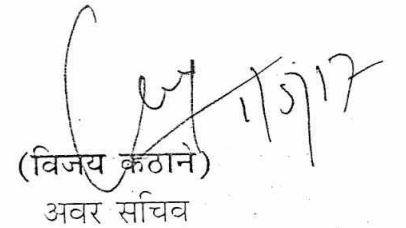 1/5/17
(विजय कठाने)
अवर सचिव